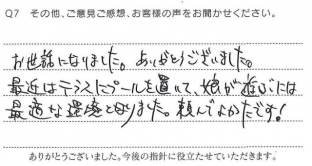 Q7 その他、ご意見ご感想、お客様の声をお聞かせください。
お世話になりました。ありがとうございました。
最近はテラスにプールを置いて、娘が遊ぶには
最適な環境となりました。頼んでよかったです!
ありがとうございました。今後の指針に役立たせていただきます。